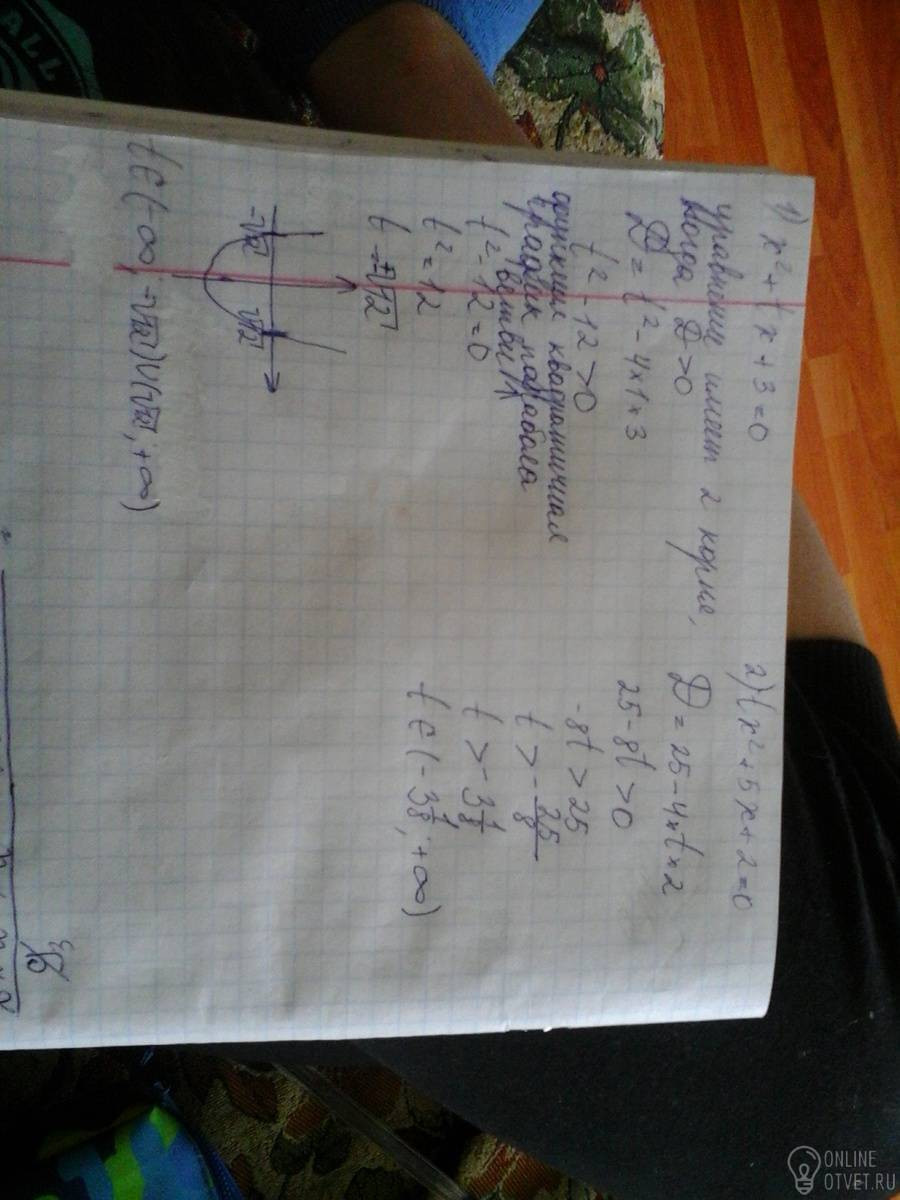 1) x² + tx + 3 = 0
уравнение имеет 2 корня,
когда D > 0
D = t² - 4×1×3
t² - 12 > 0
функция квадратичная
график парабола
ветви ↑
t² - 12 = 0
t² = 12
t = ±√12
-√12 √12
t ∈ (-∞; -√12) ∪ (√12; +∞)
2) tx² + 5x + 2 = 0
D = 25 - 4×t×2
25 - 8t > 0
-8t > 25
t > - 25/8
t > -3 1/8
t ∈ (-3 1/8; +∞)
ALL
ONLINE
OTVET.RU